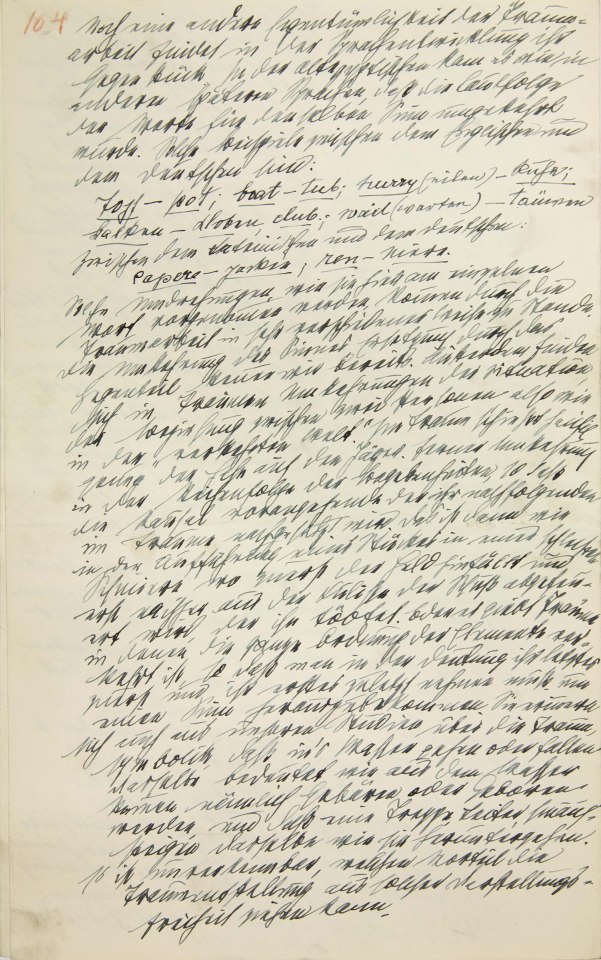 104
Noch eine andere Eigentümlichkeit der Traum-
arbeit findet in der Sprachentwicklung ihr
Gegenstück. In der altegyptischen kam es wie in
andern späteren Sprachen, daß die Lautfolge
der Worte für denselben Sinn umgekehrt
wurde. Solche Beispiele zwischen dem Englischen und
dem Deutschen sind:
Topf – pot; boat – tub; hurry (eilen) – Ruhe;
Balken – Kloben, club; wait (warten) – täuwen
Zwischen dem Lateinischen und dem deutschen:
capere – packen, ren – niere.
Solche Umdrehungen, wie sie hier am einzelnen
Wort vorgenommen werden, kommen durch die
Traumarbeit in sehr verschiedener Weise zu Stande.
Die Umkehrung des Sinnes, Ersetzung durch das
Gegenteil kennen wir bereits. Außerdem finden
sich in Träumen Umkehrungen der Situation
der Beziehung zwischen zwei Personen also wie
in der „verkehrten Welt“. Im Traum schießt häufig
genug der Hase auf den Jäger. Ferner Umkehrung
in der Reihenfolge der Begebenheiten, so daß
die kausal vorangehende der ihr nachfolgenden
im Traume nachgesetzt wird. Das ist dann wie
in der Aufführung eines Stückes in einer schlechten
Schmiere, wo zuerst der Held hinfällt und
erst nachher aus der Kulisse der Schuß abgefeu-
ert wird, der ihn tödtet. oder es giebt Träume
in denen die ganze Ordnung der Elemente ver-
kehrt ist, so daß man in der Deutung ihr letztes
zuerst und ihr erstes zuletzt nehmen muß um
einen Sinn herauszubekommen. Sie erinnern
sich auch aus unseren Studien über die Traum-
symbolik, daß in's Wasser gehen oder fallen
dasselbe bedeutet wie aus dem Wasser
kommen nämlich gebären oder geboren
werden, und daß eine Treppe Leiter hinauf-
steigen dasselbe wie sie heruntergehen.
Es ist unverkennbar, welchen Vorteil die
Traumentstellung aus solcher Darstellungs-
freiheit ziehen kann.